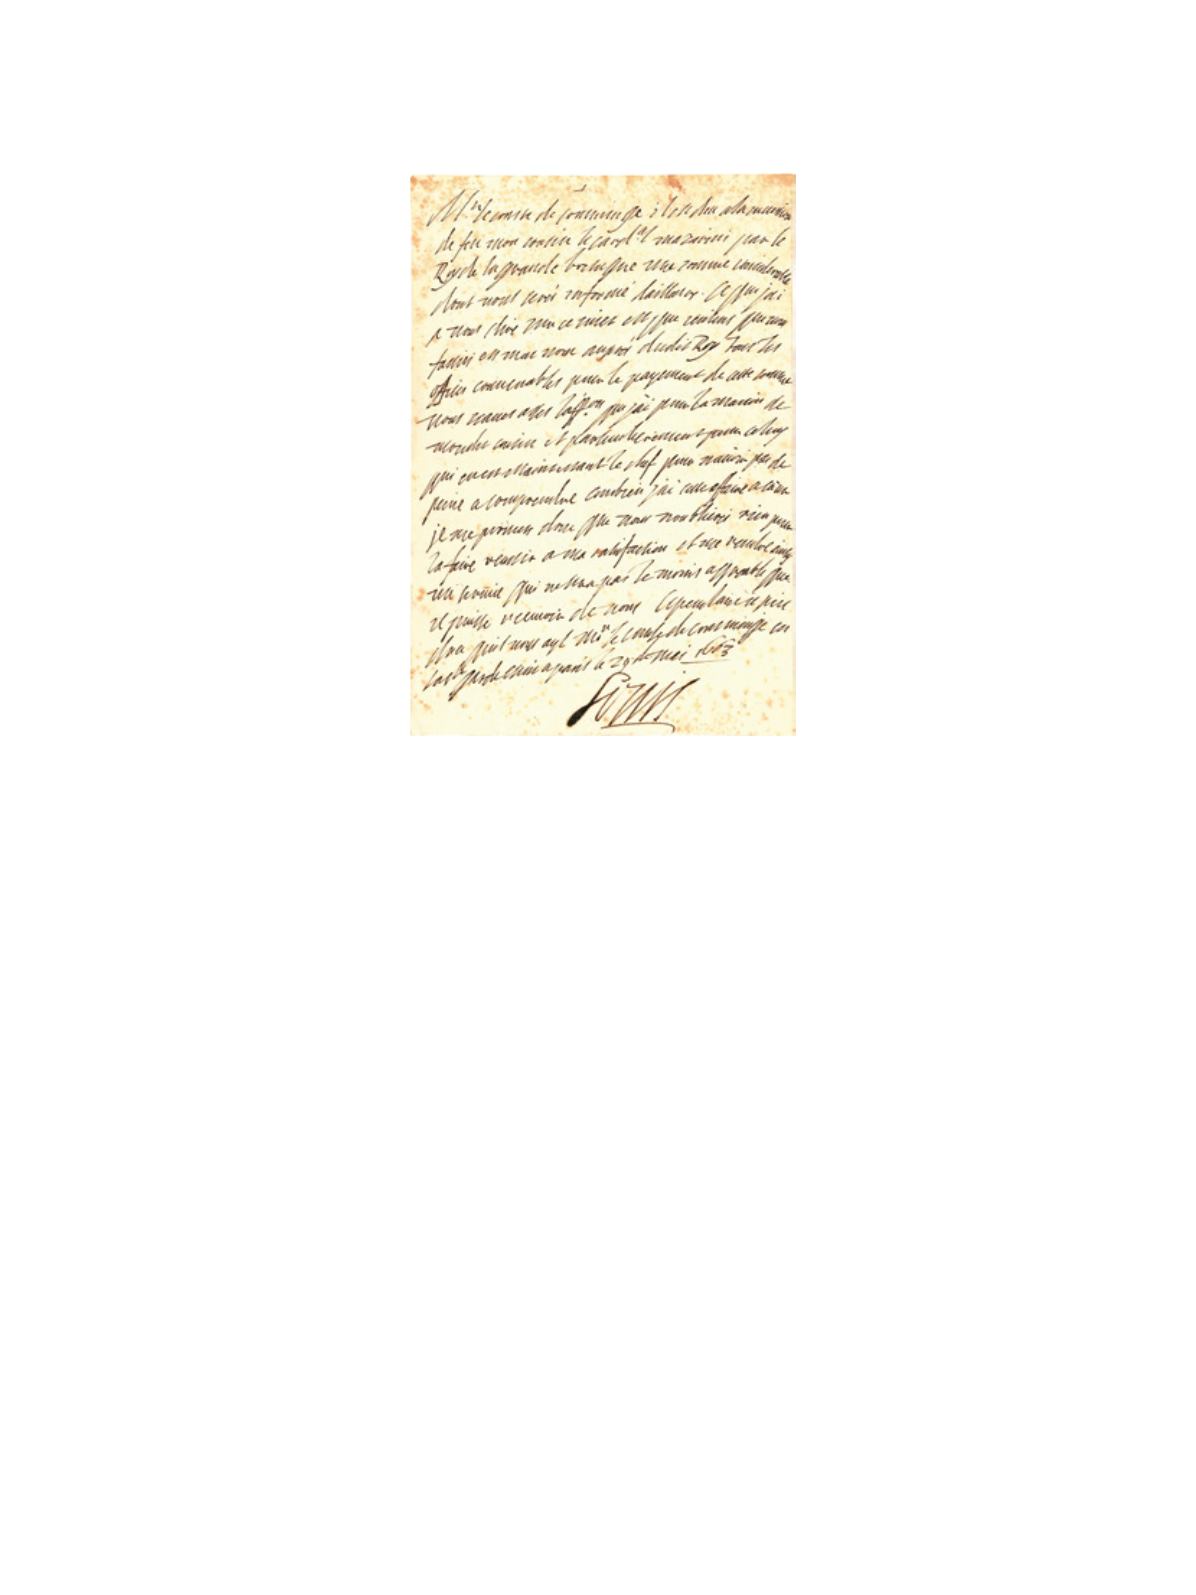 Mr. le comte de Comminge il est deu a la succession
de feu mon cousin le card.al mazarini par le
Roy de la grande bretagne une somme considerable
dont vous serés informé dailleurs. Ce que jai
a vous dire sur ce sujet est que
fassiés en mon nom auprés dudit Roy tous les
offices convenables pour le payement de cette somme
vous scavés asses laff.on que jai pour la maison de
mondit cousin et particulierement pour celuy
qui en est maintenant le chef pour navoir pas de
peine a comprendre combien jai cette affaire a coeur
je me promets donc que vous noublierés rien pour
la faire reussir a ma satisfaction et me rendre
un service qui ne sera pas le moins agreable que
je puisse recevoir de vous Cependant je prie
dieu quil vous ayt Mr le comte de Commenge en
sa s.te garde escrit a paris le 29 de mai 1663
Louis